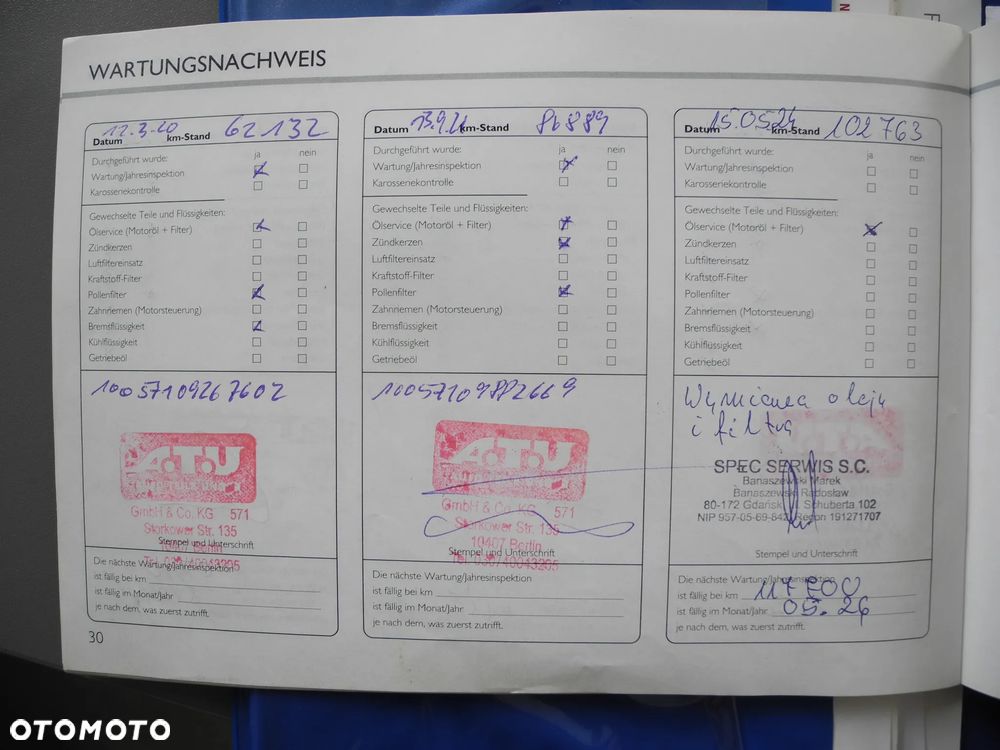 WARTUNGSNACHWEIS
Datum 12.3-20 km-Stand 62132
Durchgeführt wurde: ja nein
Wartung/Jahresinspektion
Karosseriekontrolle
Gewechselte Teile und Flüssigkeiten:
Ölservice (Motoröl + Filter)
Zündkerzen
Luftfiltereinsatz
Kraftstoff-Filter
Pollenfilter
Zahnriemen (Motorsteuerung)
Bremsflüssigkeit
Kühlflüssigkeit
Getriebeöl
10057109267602
A.T.U
GmbH & Co. KG 571
Storkower Str. 135
10407 Berlin
Stempel und Unterschrift
Tel. 030/40043205
Die nächste Wartung/Jahresinspektion
ist fällig bei km
ist fällig im Monat/Jahr
je nach dem, was zuerst zutrifft.
30
Datum km-Stand 86889
Durchgeführt wurde: ja nein
Wartung/Jahresinspektion
Karosseriekontrolle
Gewechselte Teile und Flüssigkeiten:
Ölservice (Motoröl + Filter)
Zündkerzen
Luftfiltereinsatz
Kraftstoff-Filter
Pollenfilter
Zahnriemen (Motorsteuerung)
Bremsflüssigkeit
Kühlflüssigkeit
Getriebeöl
10057109882669
A.T.U
GmbH & Co. KG 571
Storkower Str. 135
10407 Berlin
Stempel und Unterschrift
Tel. 030/40043205
Die nächste Wartung/Jahresinspektion
ist fällig bei km
ist fällig im Monat/Jahr
je nach dem, was zuerst zutrifft.
Datum 15.05.24 km-Stand 102763
Durchgeführt wurde: ja nein
Wartung/Jahresinspektion
Karosseriekontrolle
Gewechselte Teile und Flüssigkeiten:
Ölservice (Motoröl + Filter)
Zündkerzen
Luftfiltereinsatz
Kraftstoff-Filter
Pollenfilter
Zahnriemen (Motorsteuerung)
Bremsflüssigkeit
Kühlflüssigkeit
Getriebeöl
Wymiana oleju
i filtra
SPEC SERWIS S.C.
Banaszewski Marek
Banaszewski Radosław
80-172 Gdańsk Schuberta 102
NIP 957-05-69-842 Regon 191271707
Stempel und Unterschrift
Die nächste Wartung/Jahresinspektion
ist fällig bei km
ist fällig im Monat/Jahr 05.26
je nach dem, was zuerst zutrifft.
OTOMOTO